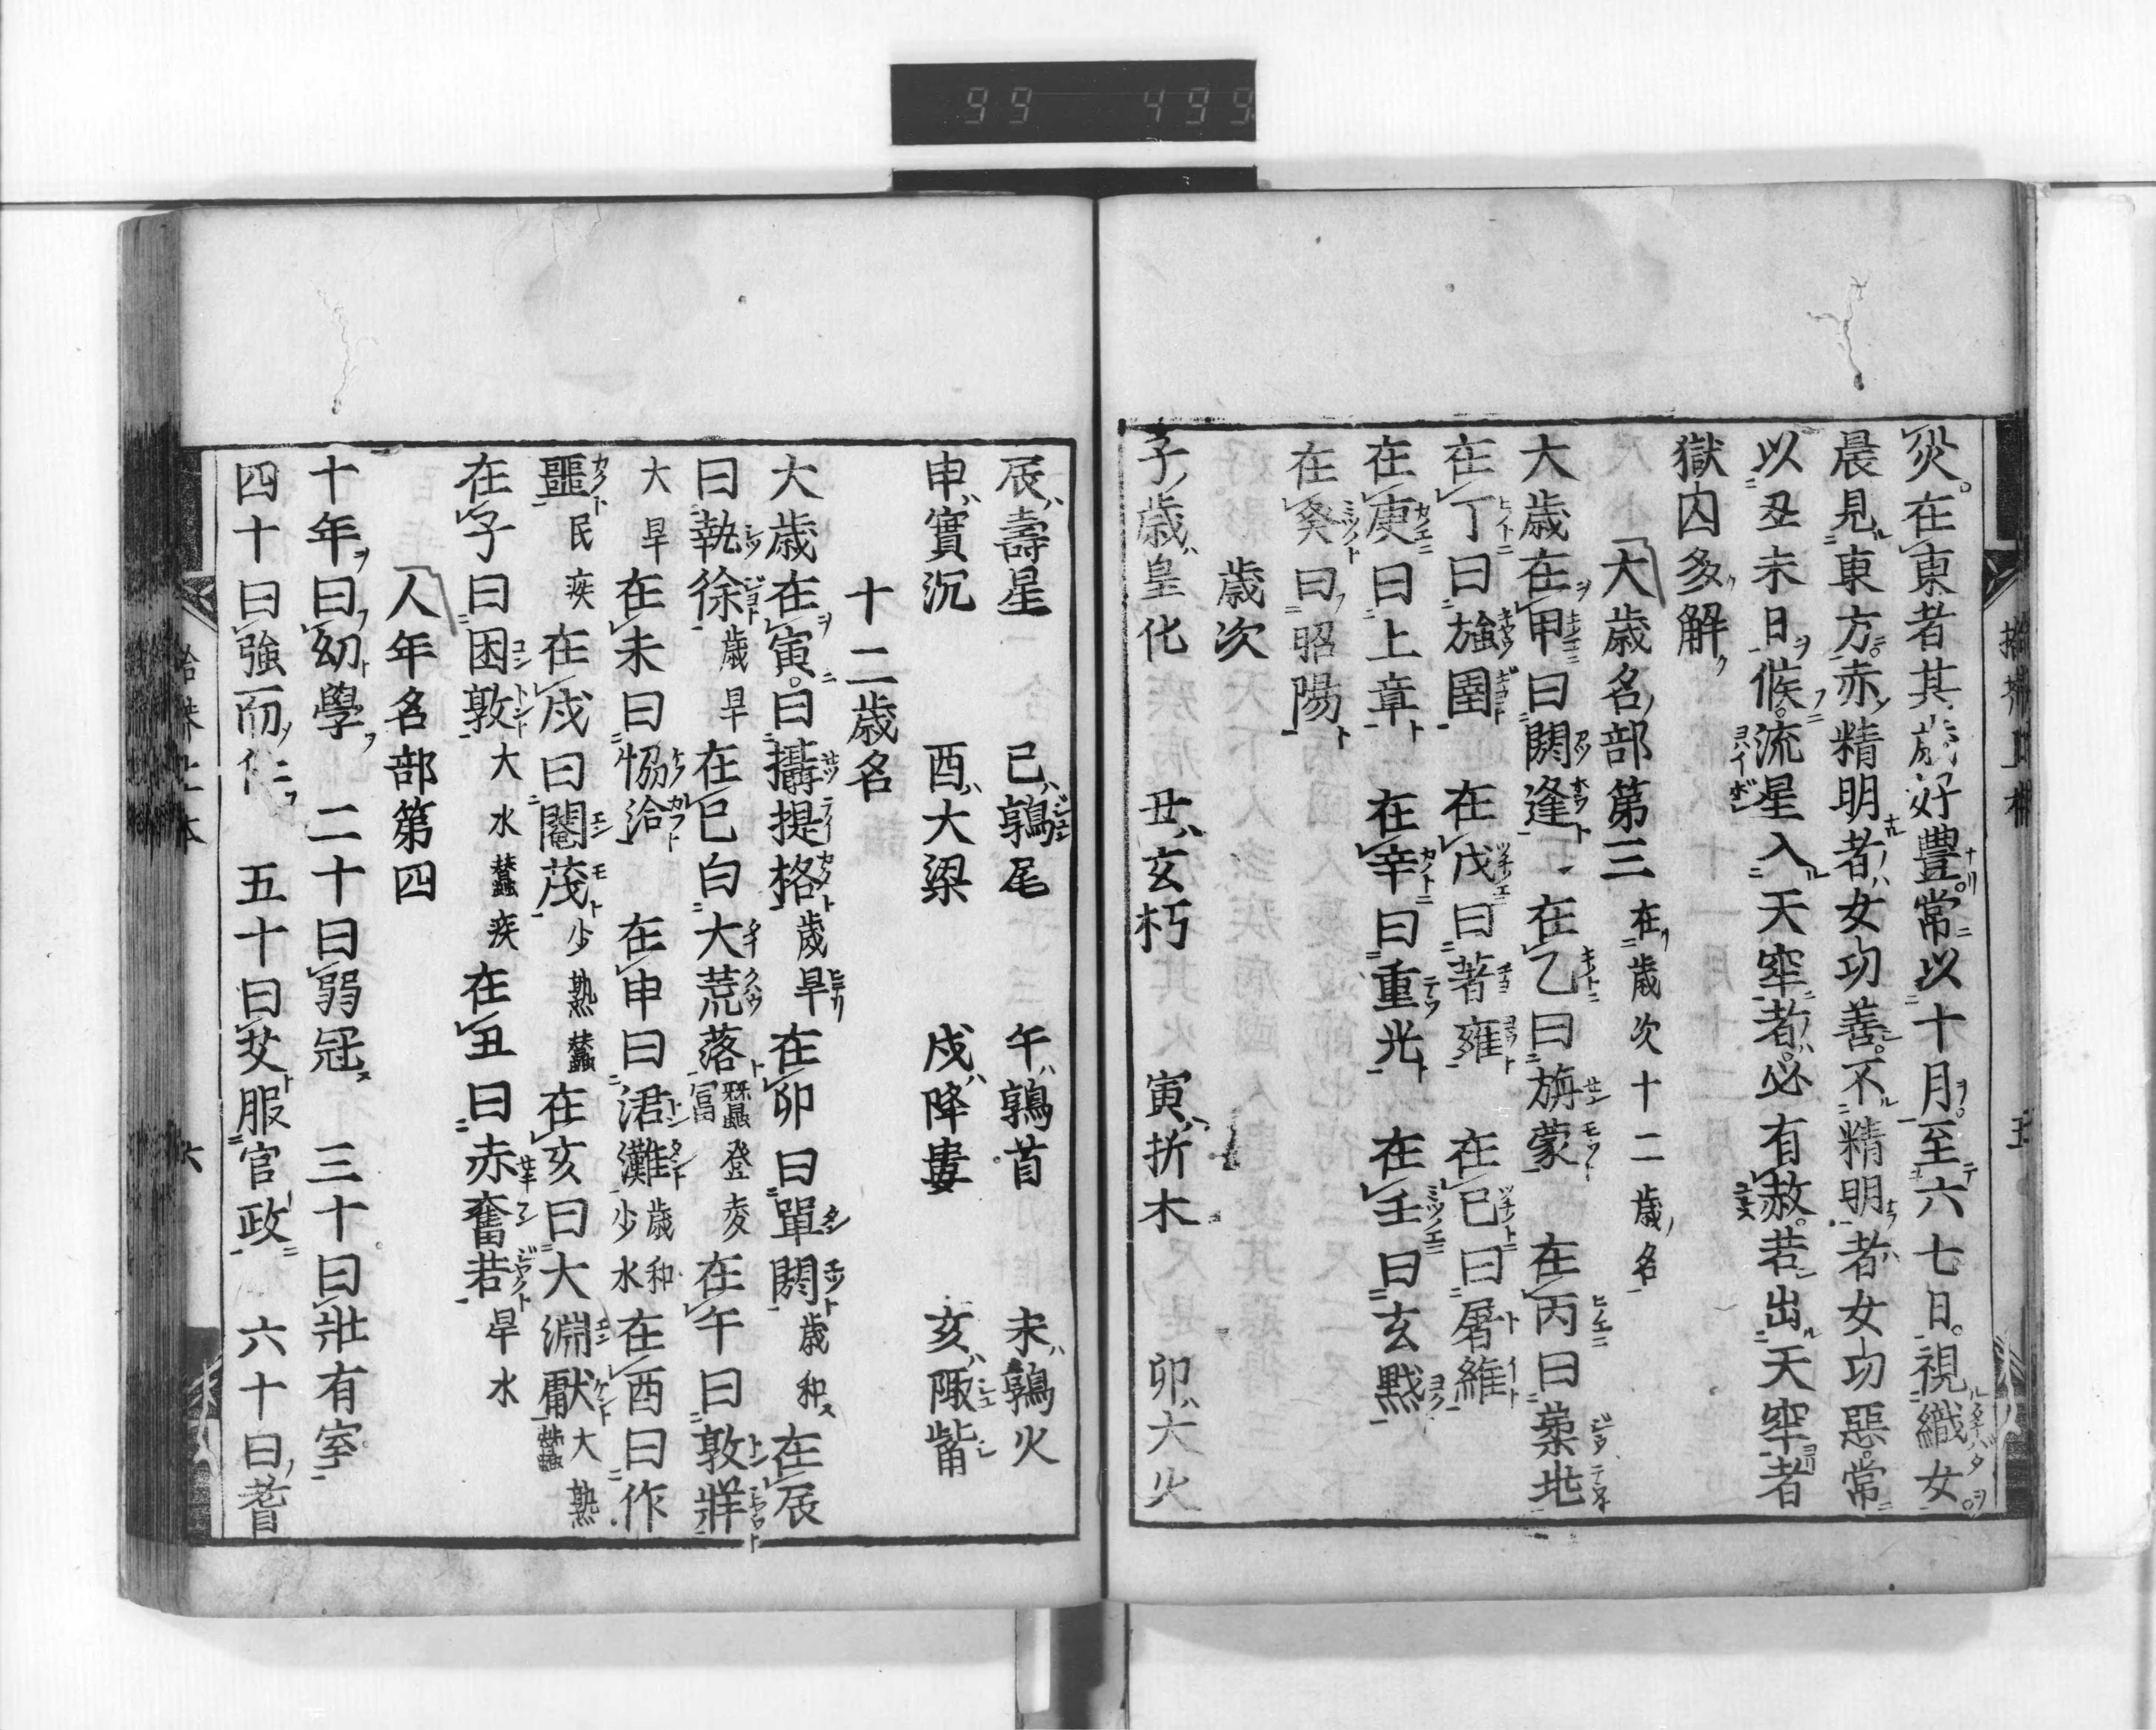 99 499
災在東者其歳好豊常以十月至六七日視織女
晨見東方赤精明者女功善不精明者女功惡常
以丑未日候流星入天窂者必有赦若出天窂者
獄囚多解
大歳名部第三 在歳次十二歳名
大歳在甲曰閼逢 在乙曰旃蒙 在丙曰柔兆
在丁曰強圉 在戊曰著雍 在己曰屠維
在庚曰上章 在辛曰重光 在壬曰玄黓
在癸曰昭陽
歳次
子歳皇化 丑玄枵 寅析木 卯大火
辰壽星 巳鶉尾 午鶉首 未鶉火
申實沉 酉大梁 戌降婁 亥陬觜
十二歳名
大歳在寅曰攝提格歳旱 在卯曰單閼歳和 在辰
曰執徐歳旱 在巳白大荒落蚕登麦 在午曰敦牂
大旱 在未曰協洽 在申曰涒灘歳和少水 在酉曰作
噩民疾 在戌曰閹茂少熟 在亥曰大淵獻大熟
在子曰困敦大水疾 在丑曰赤奮若旱水
人年名部第四
十年曰幼學 二十曰弱冠 三十曰壯有室
四十曰強而仕 五十曰艾服官政 六十曰耆
六